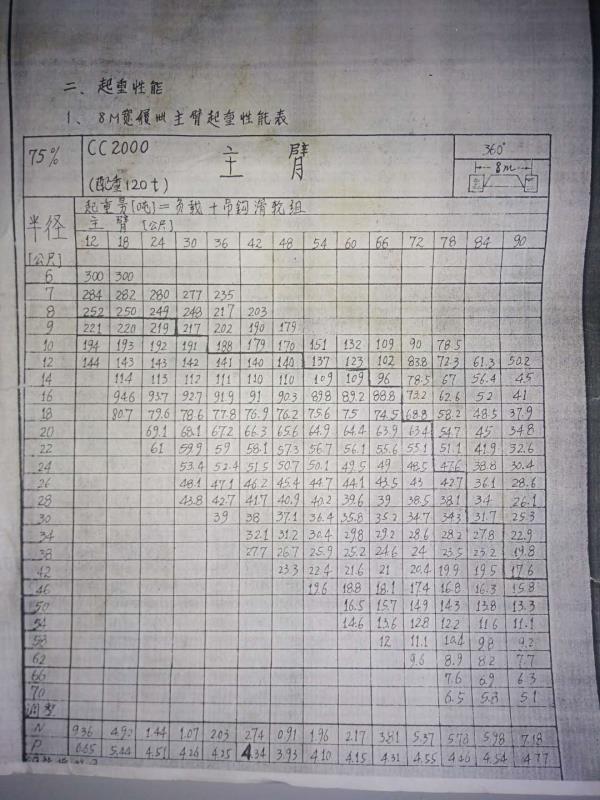 二、起重性能
1、8M宽履带主臂起重性能表
75% CC2000 主臂 360°
(配重120t) 8m
起重量[吨]=负载+吊鈎滑轮组
半径 主臂 [公尺]
[公尺] 12 18 24 30 36 42 48 54 60 66 72 78 84 90
6 300 300
7 284 282 280 277 235
8 252 250 249 248 217 203
9 221 220 219 217 202 190 179
10 194 193 192 191 188 179 170 151 132 109 90 78.5
12 144 143 143 142 141 140 140 137 123 102 83.8 72.3 61.3 50.2
14 114 113 112 111 110 110 109 109 96 78.5 67 56.4 45
16 94.6 93.7 92.7 91.9 91 90.3 89.8 89.2 88.8 73.2 62.6 52 41
18 80.7 79.6 78.6 77.8 76.9 76.2 75.6 75 74.5 68.8 58.2 48.5 37.9
20 69.1 68.1 67.2 66.3 65.6 64.9 64.4 63.9 63.4 54.7 45 34.8
22 61 59.9 59 58.1 57.3 56.7 56.1 55.6 55.1 51.1 41.9 32.6
24 53.4 52.4 51.5 50.7 50.1 49.5 49 48.5 47.6 38.8 30.4
26 48.1 47.1 46.2 45.4 44.7 44.1 43.5 43 42.7 36.1 28.6
28 43.8 42.7 41.7 40.9 40.2 39.6 39 38.5 38.1 34 26.1
30 39 38 37.1 36.4 35.8 35.2 34.7 34.3 31.7 25.3
34 32.1 31.2 30.4 29.8 29.2 28.6 28.2 27.8 22.9
38 27.7 26.7 25.9 25.2 24.6 24 23.5 23.2 19.8
42 23.3 22.4 21.6 21 20.4 19.9 19.5 17.6
46 19.6 18.8 18.1 17.4 16.8 16.3 15.8
50 16.5 15.7 14.9 14.3 13.8 13.3
54 14.6 13.6 12.8 12.2 11.6 11.1
58 12 11.1 10.4 9.8 9.2
62 9.6 8.9 8.2 7.7
66 7.6 6.9 6.3
70 6.5 5.8 5.1
调整
N 9.36 4.92 1.44 1.07 2.03 2.74 0.91 1.96 2.17 3.81 5.37 5.78 5.98 7.18
P 6.65 5.44 4.51 4.26 4.25 4.34 3.93 4.10 4.15 4.31 4.55 4.46 4.54 4.77